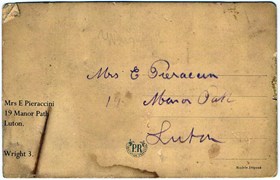 Mrs E Pieraccini
19 Manor Path
Luton
Mrs E Pieraccini
19 Manor Path
Luton.
Wright 3.
PR